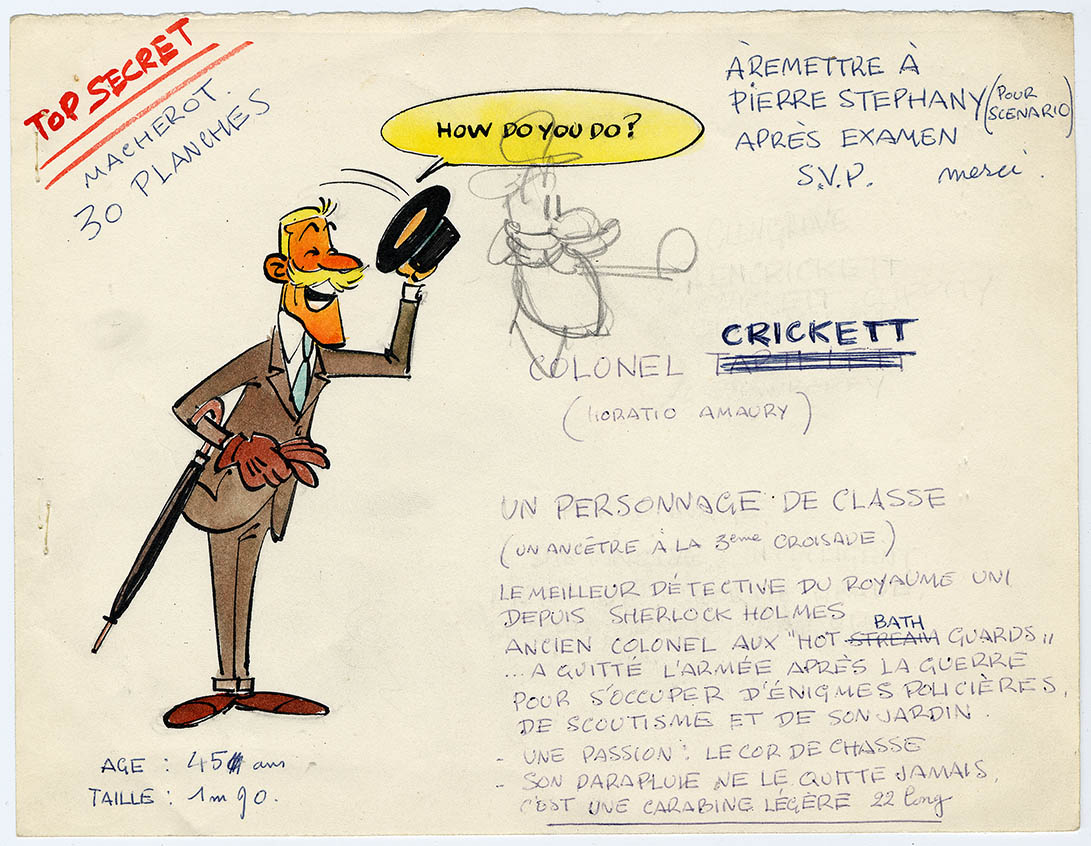 TOP SECRET
MACHEROT.
30 PLANCHES
À REMETTRE À
PIERRE STEPHANY (POUR SCENARIO)
APRÈS EXAMEN
S.V.P. merci.
HOW DO YOU DO?
CRICKETT
COLONEL
(HORATIO AMAURY)
UN PERSONNAGE DE CLASSE
(UN ANCÊTRE À LA 3eme CROISADE)
LE MEILLEUR DÉTECTIVE DU ROYAUME UNI
DEPUIS SHERLOCK HOLMES
ANCIEN COLONEL AUX "HOT STREAM BATH GUARDS"
... A QUITTÉ L'ARMÉE APRÈS LA GUERRE
POUR S'OCCUPER D'ÉNIGMES POLICIÈRES,
DE SCOUTISME ET DE SON JARDIN.
- UNE PASSION : LE COR DE CHASSE
- SON PARAPLUIE NE LE QUITTE JAMAIS,
C'EST UNE CARABINE LÉGÈRE 22 long
AGE : 45 ans
TAILLE : 1m 90.